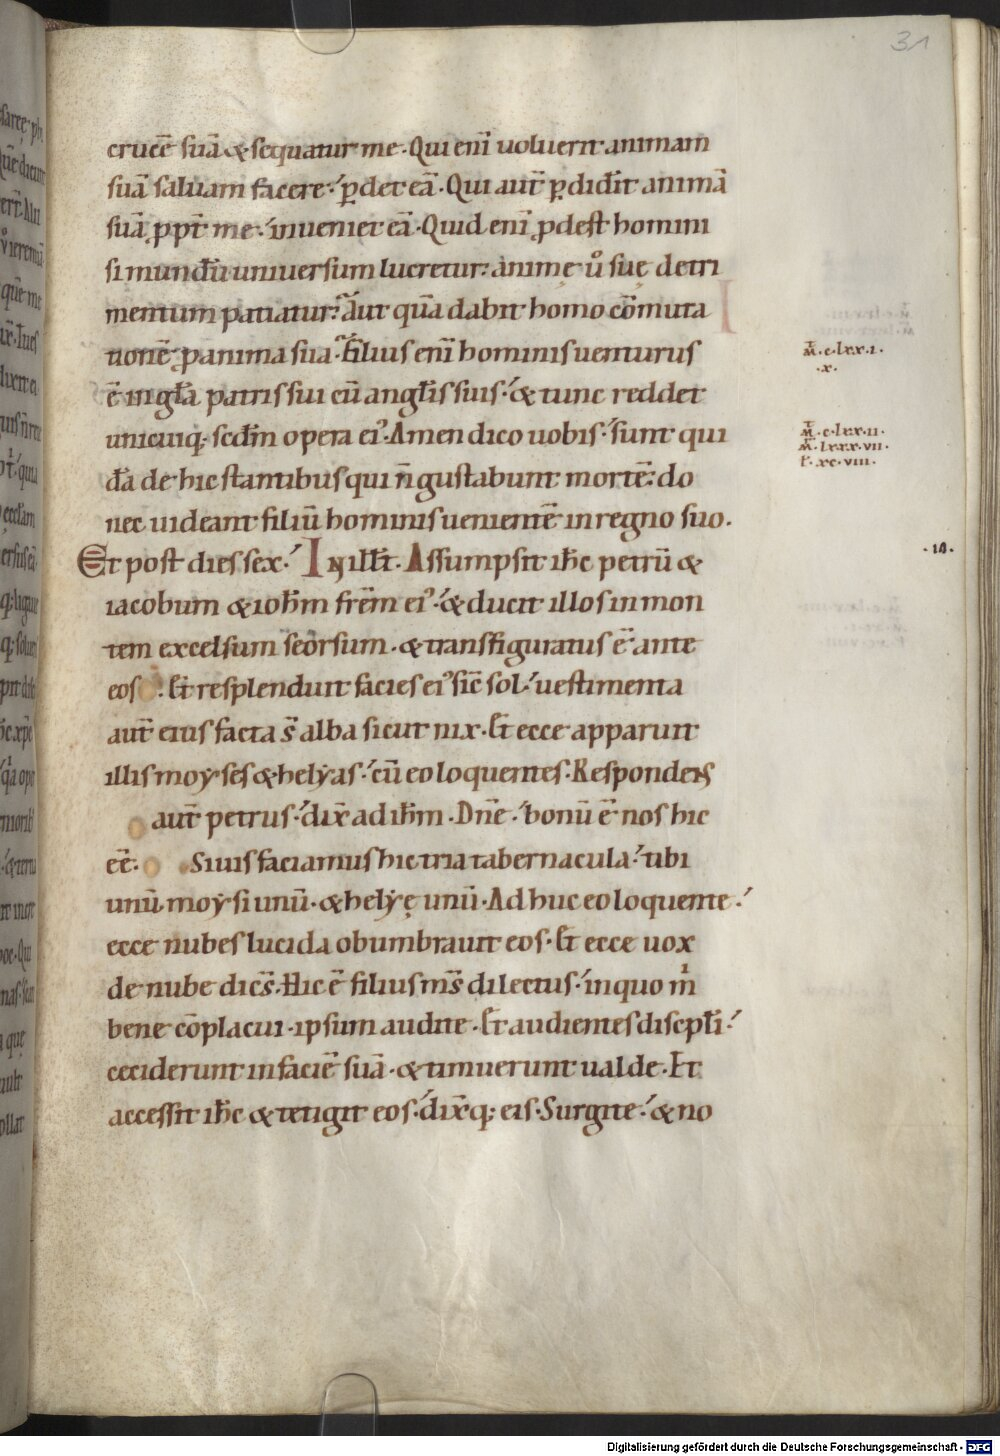 31
crucē suā & sequatur me. Qui eni̅ uoluerit animam
suā saluam facere: ꝑdet eā. Qui aut̅ ꝑdider̅it animā
suā ꝓpt̅ me: inueniet eā. Quid eni̅ ꝓdest homini
si mundū uniuersum lucretur: animę u͛o suę detri
mentum patiatur? Aut quā dabit homo cōmuta
tionē ꝓ anima sua? Filius eni̅ hominis uenturus
ē in gl̅a patris sui cū angl̅is suis: & tunc reddet
unicuiq; scd̅m opera eiꝰ. Amen dico uobis: sunt qui
dā de hic stantibus qui n̅ gustabunt mortē: do
nec uideant filiū hominis uenientē in regno suo.
Et post dies sex: In ill̅t. Assumpsit ih̅c petrū &
iacobum & ioh̅m fr̅em eiꝰ: & ducit illos in mon
tem excelsum seorsum. & transfiguratus ē ante
eos. Et resplenduit facies eiꝰ sic̅ sol: uestimenta
aut̅ eius facta s̅ alba sicut nix. Et ecce apparuit
illis moyses & helyas: cū eo loquentes. Respondens
aut̅ petrus: dix̅ ad ih̅m. Dn̅e: bonū ē nos hic
ee̅. Si uis faciamus hic tria tabernacula: tibi
unū. moysi unū. & helyę unū. Ad huc eo loquente:
ecce nubes lucida obumbrauit eos. Et ecce uox
de nube dice̅s. Hic ē filius ms̅ dilectus: in quo m
bene cōplacui. ipsum audite. Et audientes discpl̅i:
ceciderunt in faciē suā. & timuerunt ualde. Et
accessit ih̅c & tetigit eos: dix̅q; eis. Surgite: & no
M̅. c. lxx. i.
.x.
M̅. c. lxx. ii.
M̅. lxxx. vii.
l̅. xc. viii.
Digitalisierung gefördert durch die Deutsche Forschungsgemeinschaft - DFG